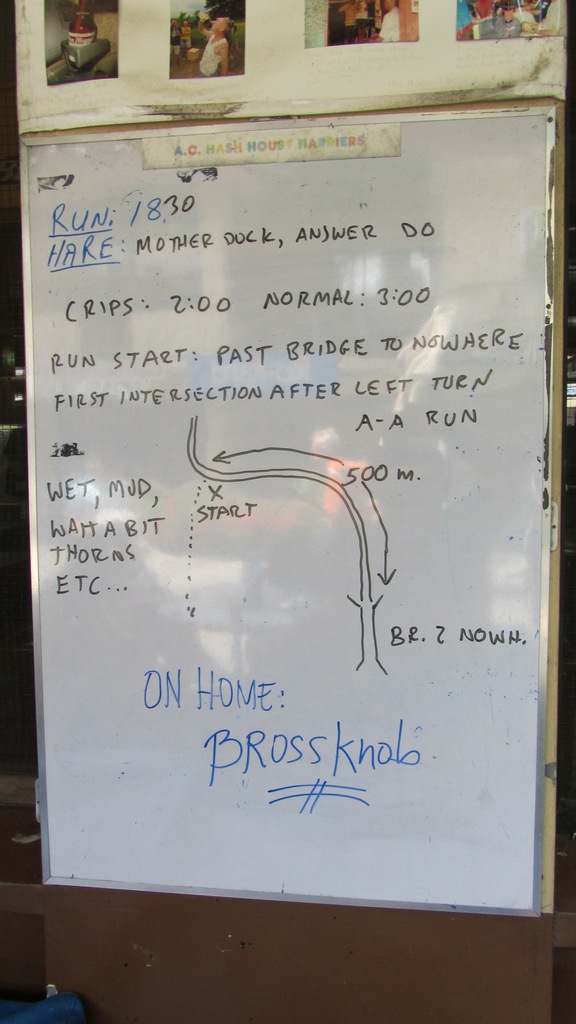 A.C. HASH HOUSE HARRIERS
RUN: 1830
HARE: MOTHER DUCK, ANSWER DO
CRIPS: 2:00 NORMAL: 3:00
RUN START: PAST BRIDGE TO NOWHERE
FIRST INTERSECTION AFTER LEFT TURN
A-A RUN
500 m.
X
START
WET, MUD,
WAIT A BIT
THORNS
ETC...
BR. 2 NOWH.
ON HOME:
BROSSKnob